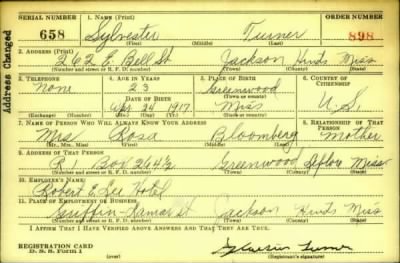 SERIAL NUMBER 1. NAME (Print) ORDER NUMBER
658 Sylvester Turner 898
(First) (Middle) (Last)
Address Changed
2. ADDRESS (Print)
262 E. Bell St Jackson Hinds Miss
(Number and street or R. F. D. number) (Town) (County) (State)
3. TELEPHONE 4. AGE IN YEARS 5. PLACE OF BIRTH 6. COUNTRY OF CITIZENSHIP
None 23 Greenwood
DATE OF BIRTH (Town or county)
Apr 24 1917 Miss U.S.
(Exchange) (Number) (Mo.) (Day) (Yr.) (State or country)
7. NAME OF PERSON WHO WILL ALWAYS KNOW YOUR ADDRESS 8. RELATIONSHIP OF THAT PERSON
Mrs Rosa Bloomberg Mother
(Mr., Mrs., Miss) (First) (Middle) (Last)
9. ADDRESS OF THAT PERSON
R 1 Box 264½ Greenwood Leflore Miss
(Number and street or R. F. D. number) (Town) (County) (State)
10. EMPLOYER'S NAME
Robert E. Lee Hotel
11. PLACE OF EMPLOYMENT OR BUSINESS
Griffin-Lamar St Jackson Hinds Miss
(Number and street or R. F. D. number) (Town) (County) (State)
I AFFIRM THAT I HAVE VERIFIED ABOVE ANSWERS AND THAT THEY ARE TRUE.
REGISTRATION CARD
D. S. S. Form 1 Sylvester Turner
(Registrant's signature)